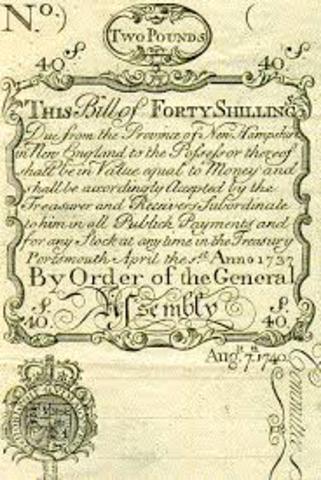 No.)
(
TWO POUNDS
40 s.
40 s.
THIS Bill of FORTY SHILLINGs
Due from the Province of New Hampshire
in New England to the Possessor thereof
shall be in Value equal to Money and
shall be accordingly Accepted by the
Treasurer and Receivers Subordinate
to him in all Publick Payments and
for any Stock at any time in the Treasury
Portsmouth April the 1st. Anno 1737
By Order of the General
Assembly
s.
40.
s.
40.
Augt. 7th. 1740.
Committee